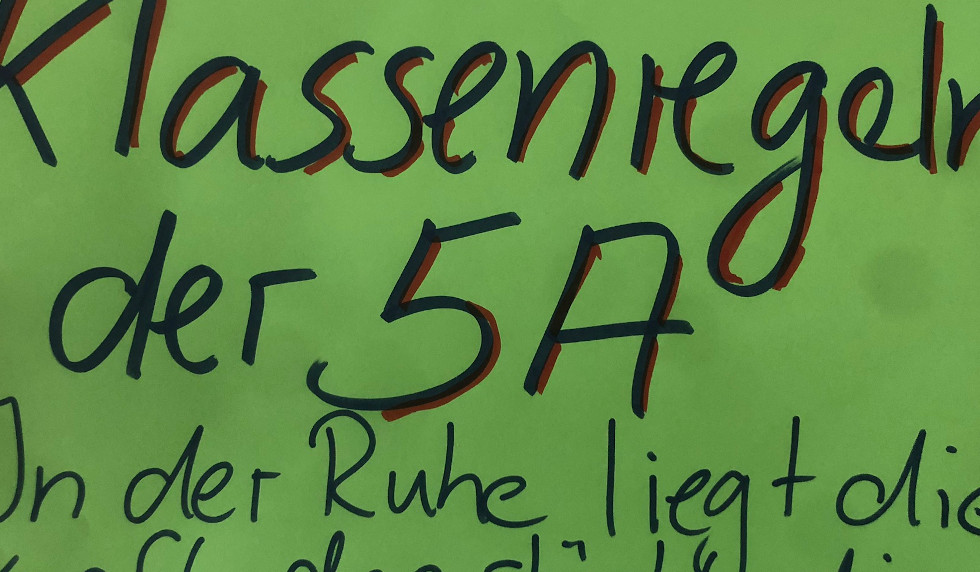 Klassenregeln
der 5A
In der Ruhe liegt die